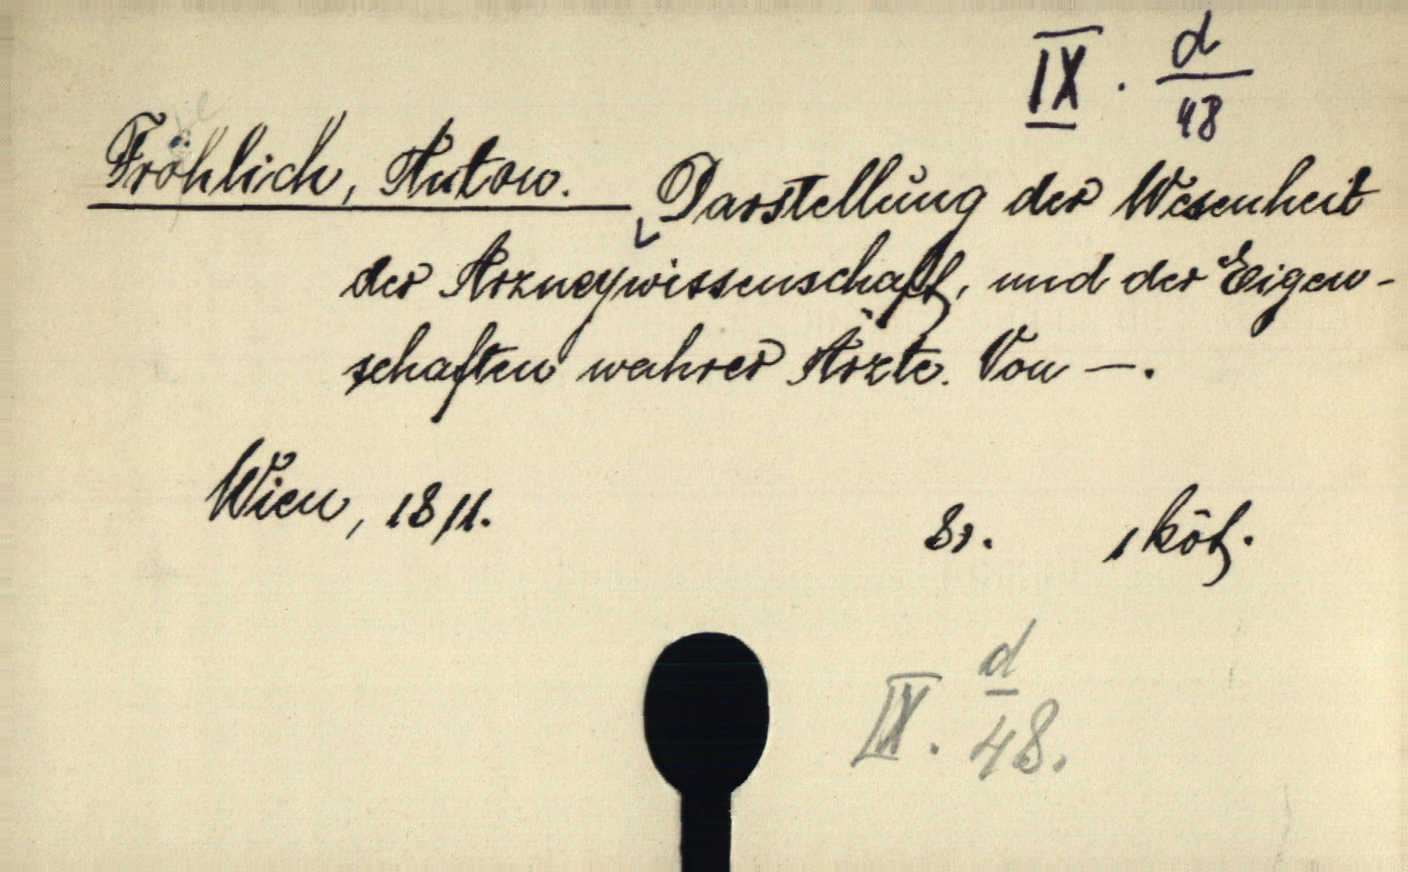 IX. d/48
Fröhlich, Anton. Darstellung der Wesenheit
der Arzneywissenschaft, und der Eigen-
schaften wahrer Ärzte. Von —.
Wien, 1811.
8r. 1 köt.
IX. d/48.